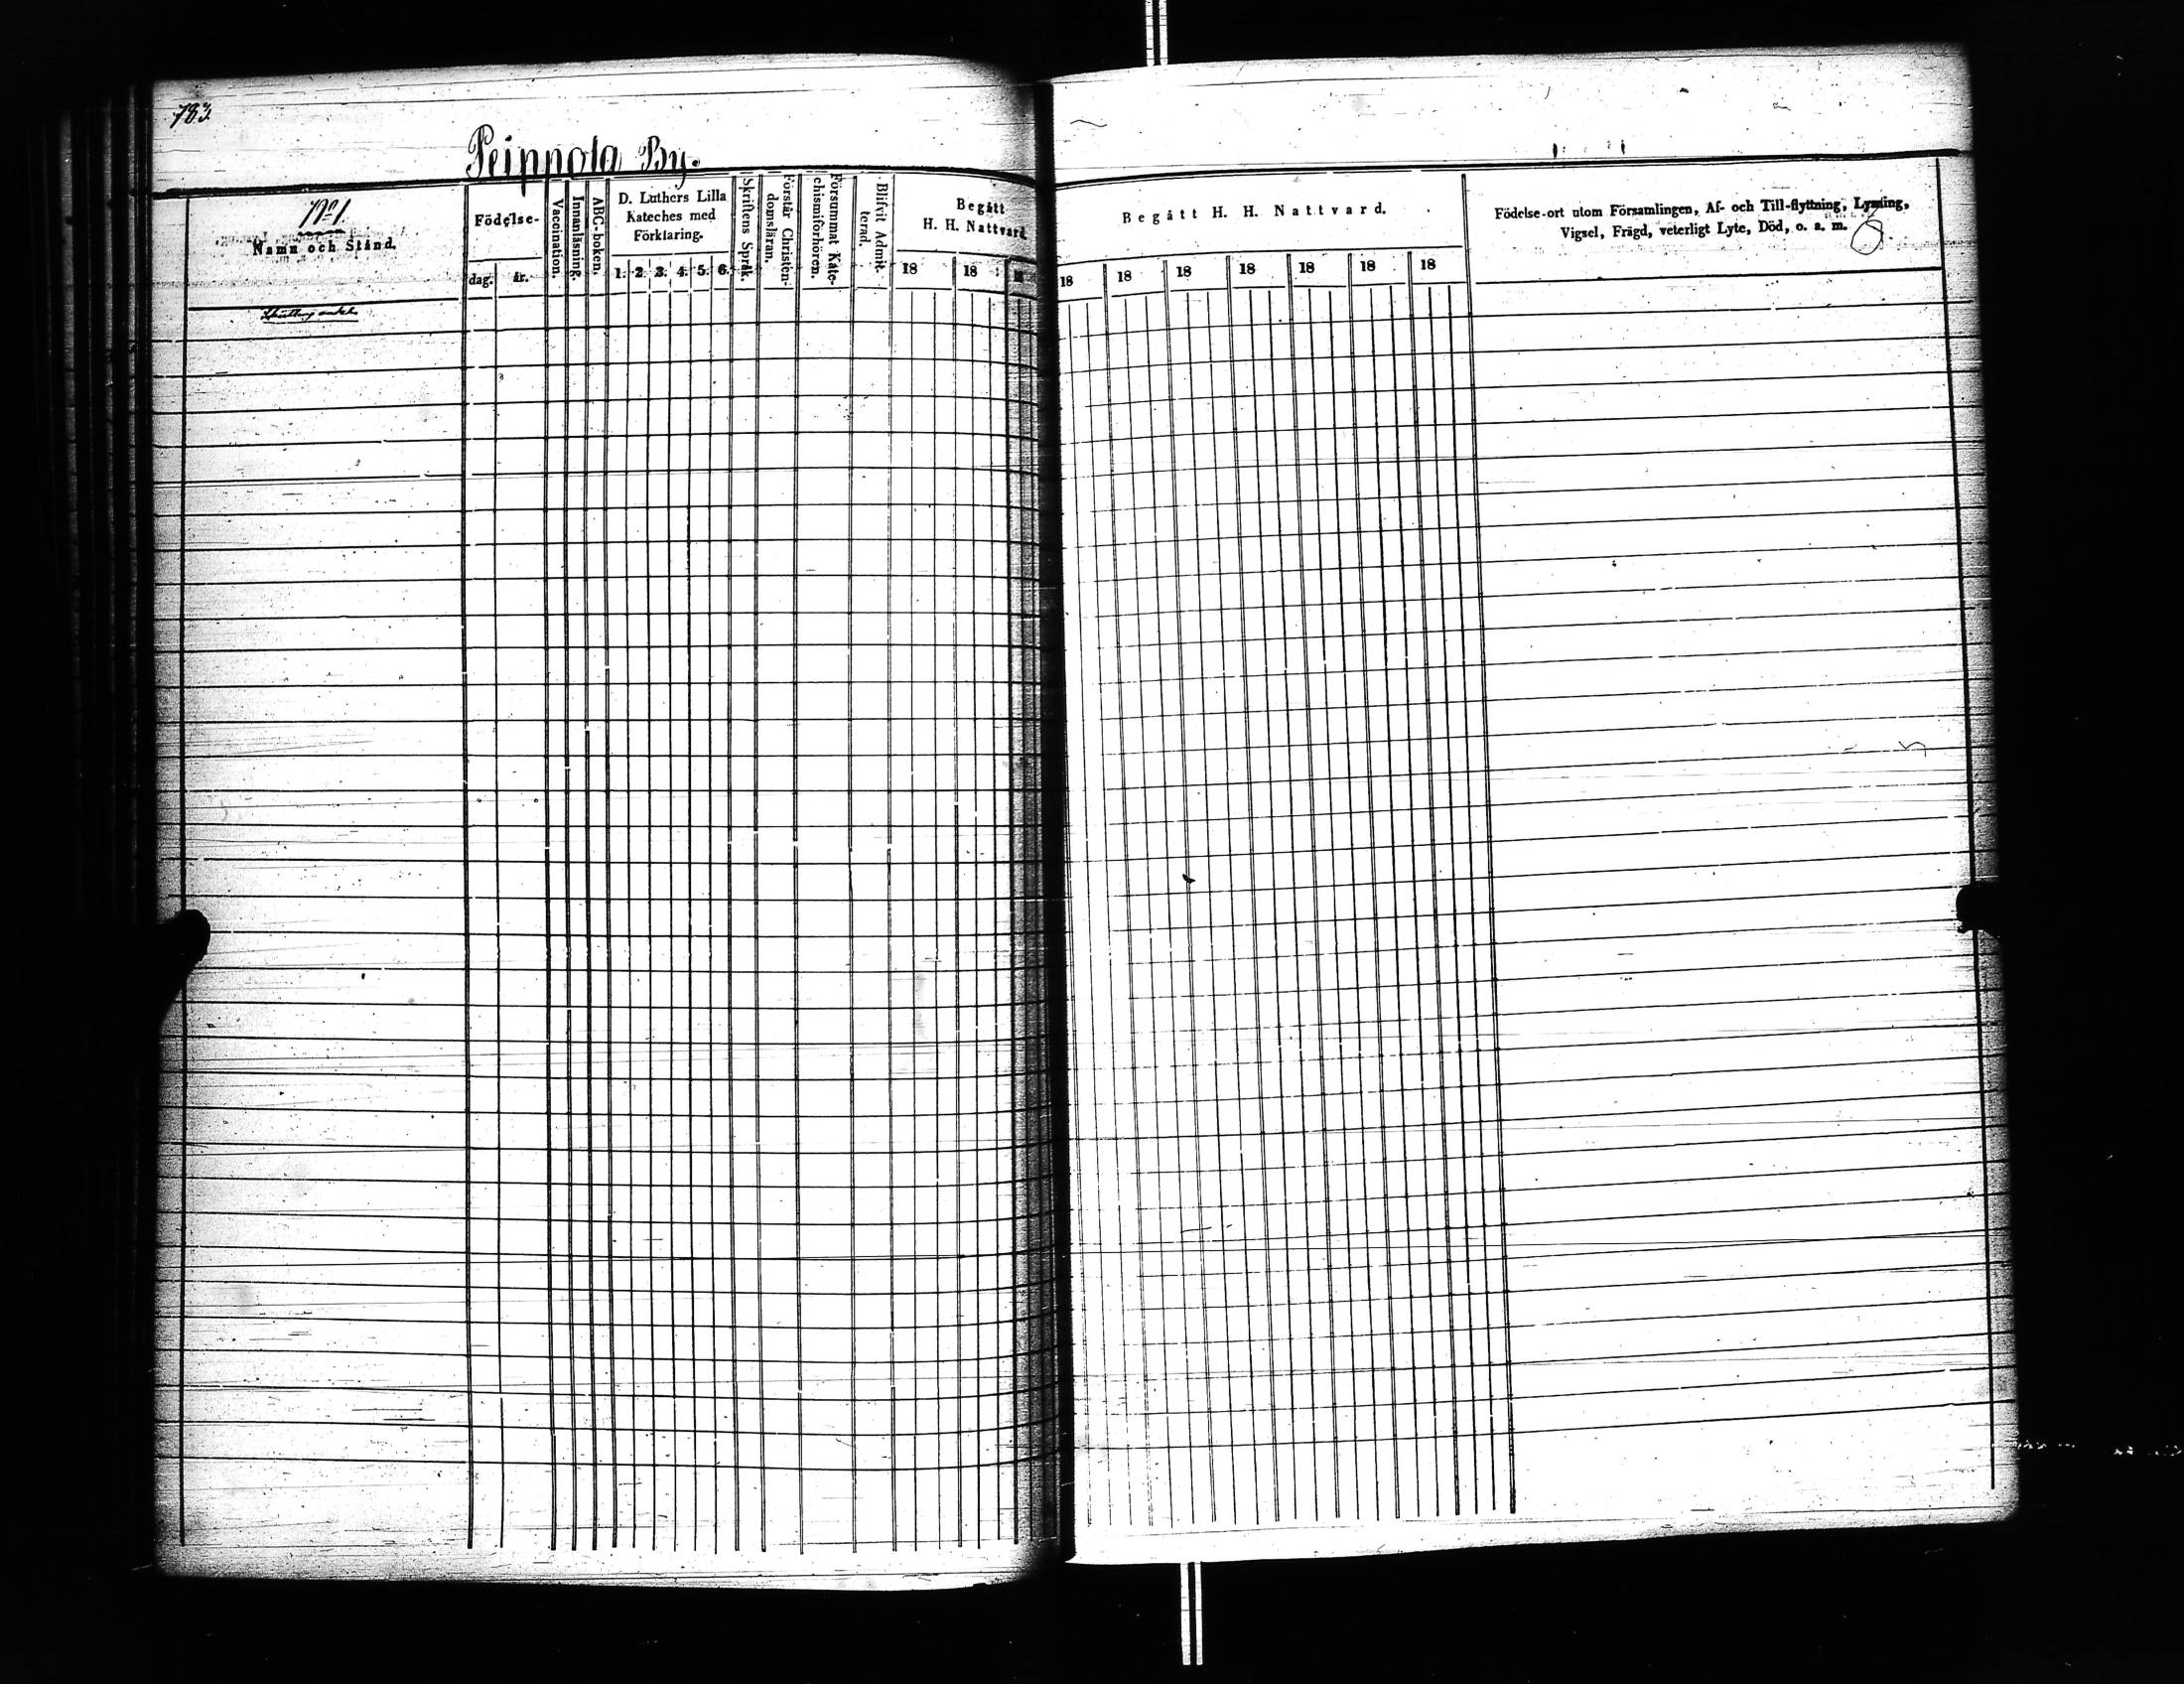 783.
Peippola By.
N:o 1.
Namn och Stånd.
Födelse-
dag.
år.
Vaccination.
Innanläsning.
ABC-boken.
D. Luthers Lilla
Kateches med
Förklaring.
1. 2. 3. 4. 5. 6.
Skriftens Språk.
Förstår Christen-
domsläran.
Försummat Kate-
chismiförhören.
Blifvit Admit-
terad.
Begått
H. H. Nattvard.
18 18
Begått H. H. Nattvard.
18 18 18 18 18 18 18
Födelse-ort utom Församlingen, Af- och Till-flyttning, Lysning,
Vigsel, Frägd, veterligt Lyte, Död, o. s. m.